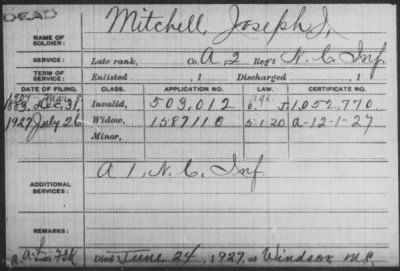 DEAD
NAME OF SOLDIER: Mitchell, Joseph J.
SERVICE: Late rank, Co. A 2 Reg't N. C. Inf.
TERM OF SERVICE: Enlisted , 1 Discharged , 1
DATE OF FILING. CLASS. APPLICATION NO. LAW. CERTIFICATE NO.
Dec. 31, Invalid, 503,012 1,052,770.
1927 July 26 Widow, 1587110 5-1-20 A-12-1-27
Minor,
ADDITIONAL SERVICES: A 1, N. C. Inf.
REMARKS:
Died June 24, 1927, at Windsor N.C.